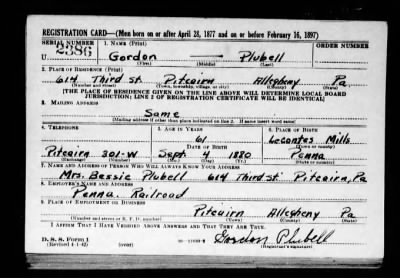 REGISTRATION CARD—(Men born on or after April 28, 1877 and on or before February 16, 1897)
SERIAL NUMBER 1. NAME (Print)
U 2386 Gordon Plubell
(First) (Middle) (Last)
2. PLACE OF RESIDENCE (Print)
614 Third St. Pitcairn Allegheny Pa
(Number and street) (Town, township, village, or city) (County) (State)
[THE PLACE OF RESIDENCE GIVEN ON THE LINE ABOVE WILL DETERMINE LOCAL BOARD
JURISDICTION; LINE 2 OF REGISTRATION CERTIFICATE WILL BE IDENTICAL]
3. MAILING ADDRESS
Same
[Mailing address if other than place indicated on line 2. If same insert word same]
4. TELEPHONE 5. AGE IN YEARS 6. PLACE OF BIRTH
61 Lecontes Mills
DATE OF BIRTH
Pitcairn 301-W Sept. 4 1880 Penna
(Exchange) (Number) (Mo.) (Day) (Yr.) (State or country)
7. NAME AND ADDRESS OF PERSON WHO WILL ALWAYS KNOW YOUR ADDRESS
Mrs. Bessie Plubell 614 Third St. Pitcairn, Pa
8. EMPLOYER'S NAME AND ADDRESS
Penna. Railroad
9. PLACE OF EMPLOYMENT OR BUSINESS
Pitcairn Allegheny Pa
(Number and street or R. F. D. number) (Town) (County) (State)
I AFFIRM THAT I HAVE VERIFIED ABOVE ANSWERS AND THAT THEY ARE TRUE.
D. S. S. Form 1
(Revised 4-1-42) (over) Gordon Plubell
(Registrant's signature)